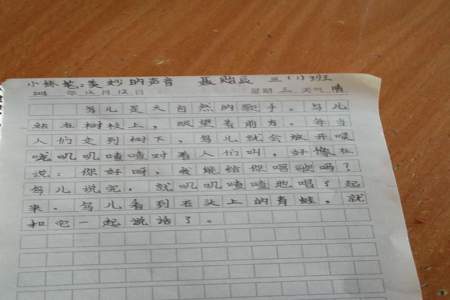 小练笔:美妙的声音 三(1)班
年 月12日 星期三 天气 晴
鸟儿是大自然的歌手。鸟儿
站在树枝上,眺望着南方。每当
人们走到树下,鸟儿就会放开喉
咙叽叽喳喳对着人们叫,好像在
说:你好呀,我献给你唱歌吗?
鸟儿说完,就叽叽喳喳地唱了起
来。鸟儿看到石头上的青蛙,就
和它一起说话了。